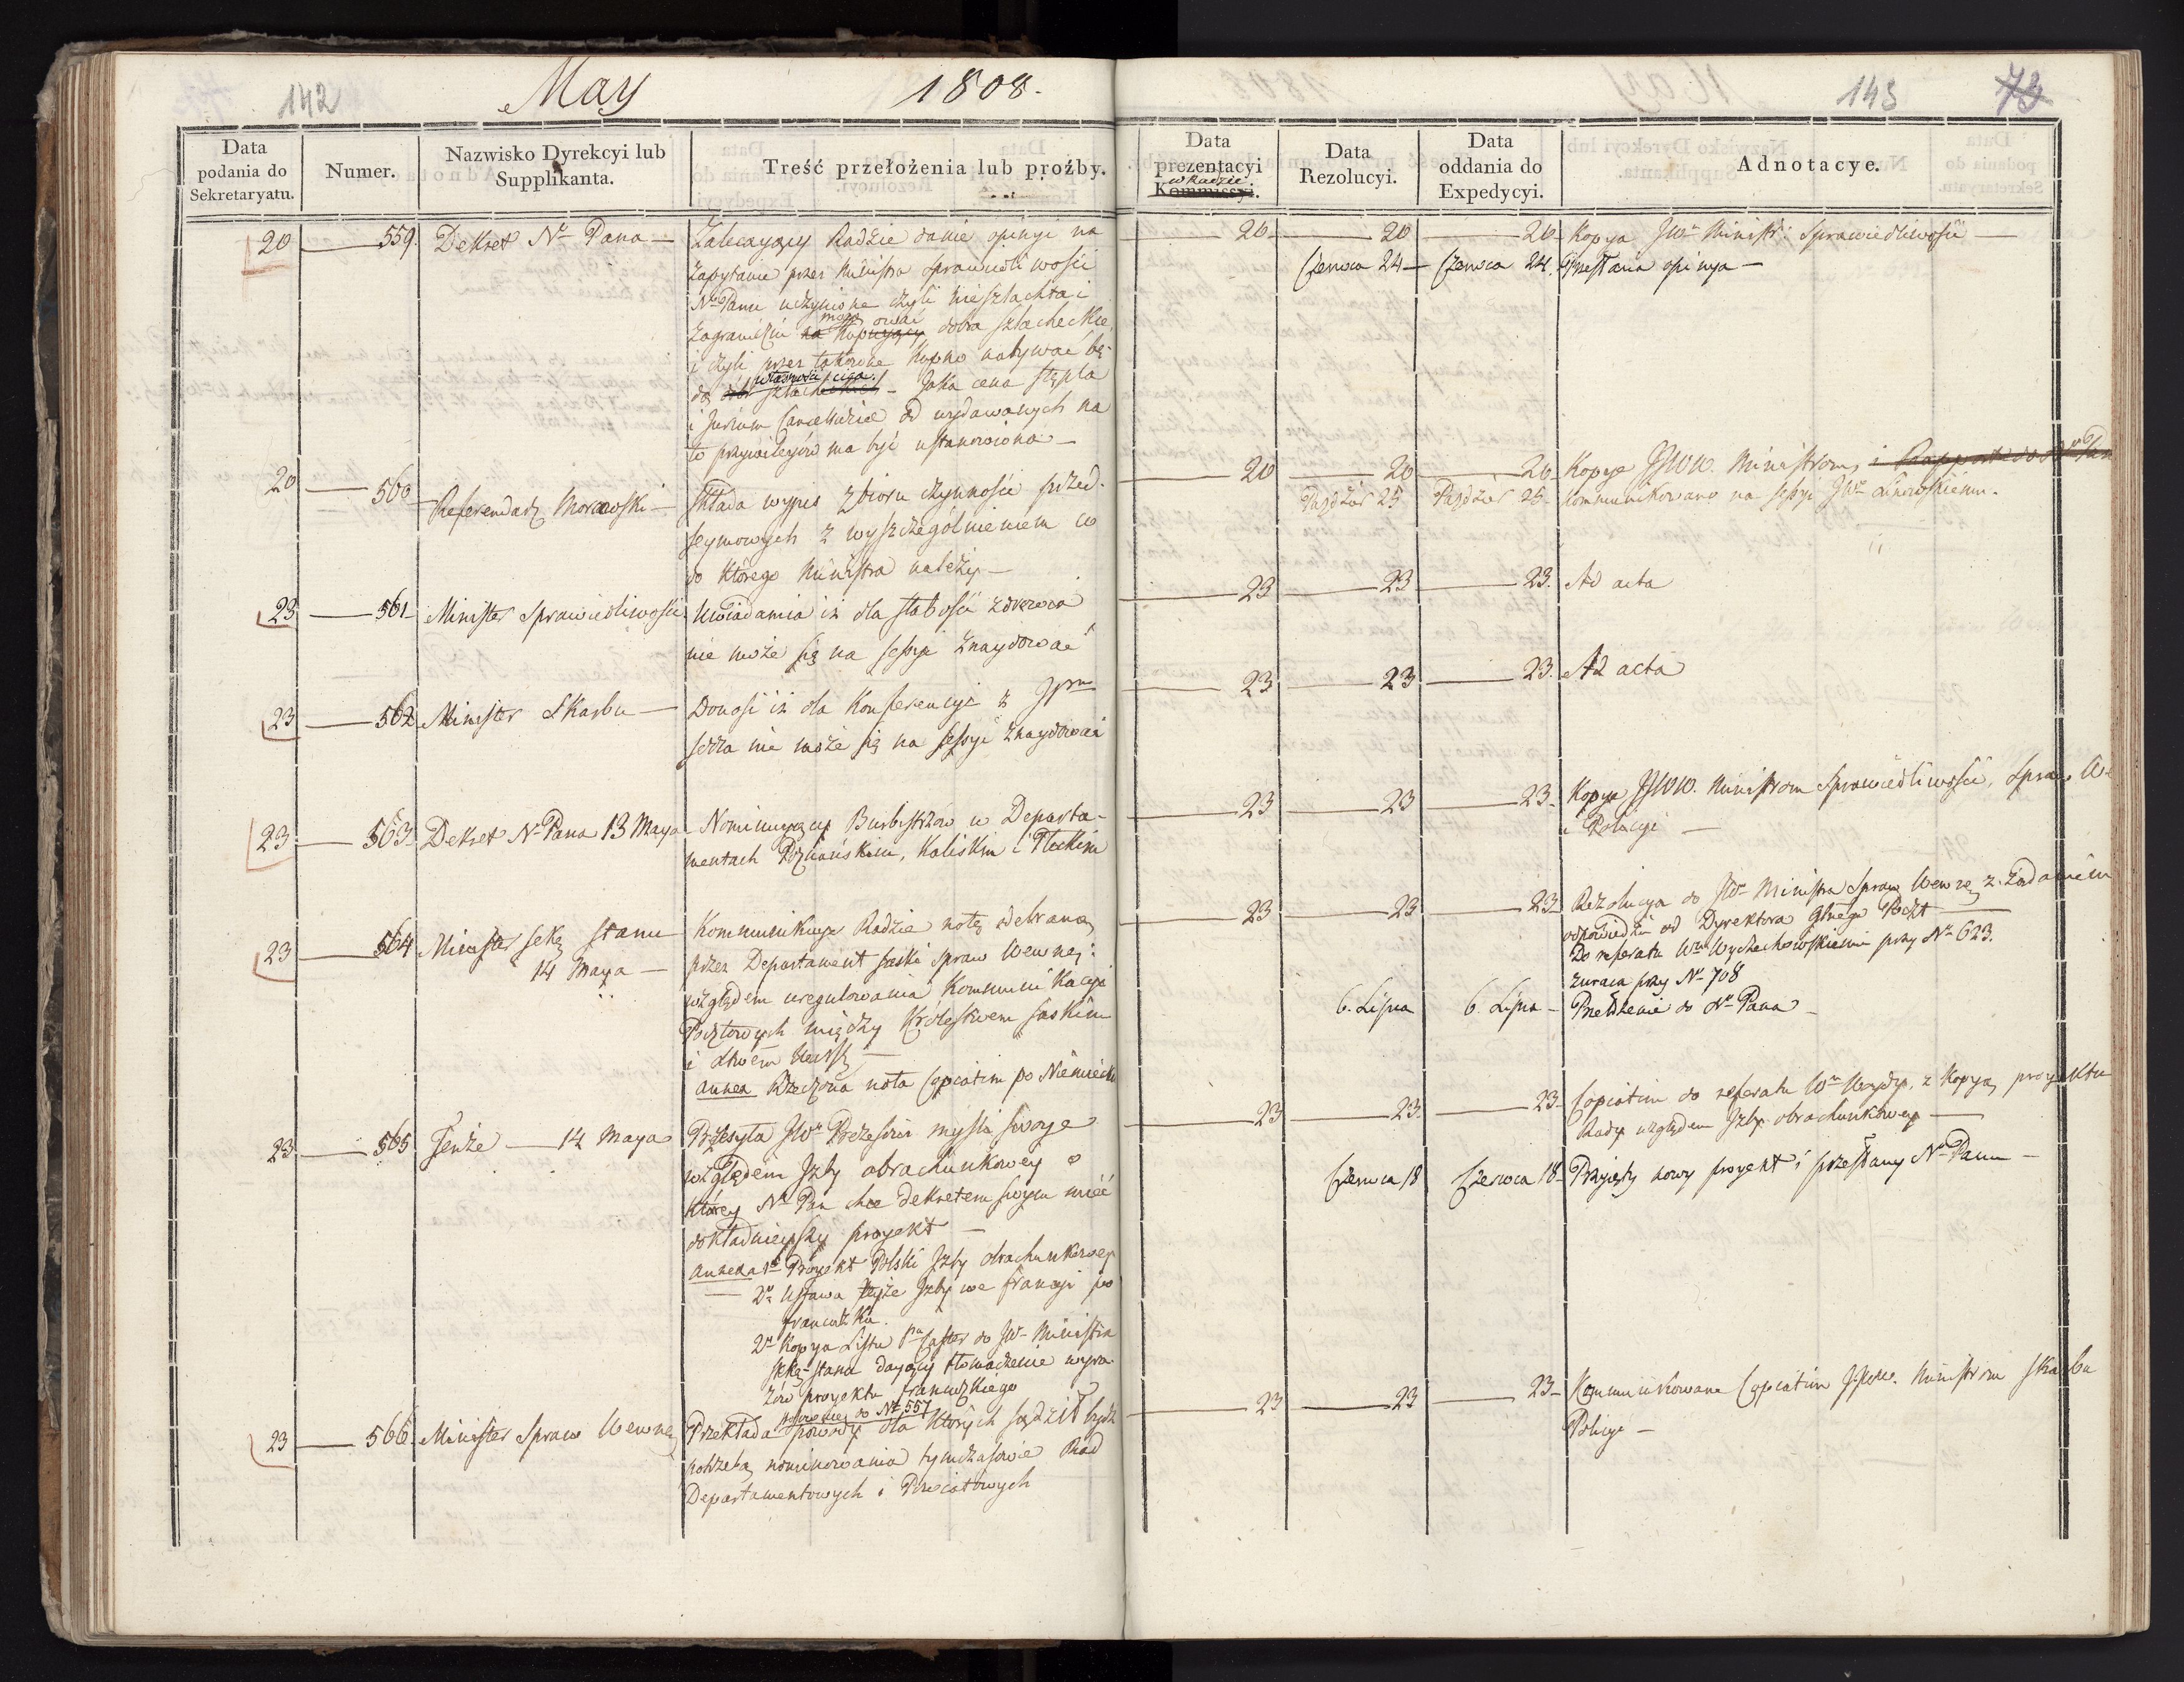 142
May 1808.
143 73
Data podania do Sekretaryatu.
Numer.
Nazwisko Dyrekcyi lub Supplikanta.
Treść przełożenia lub proźby.
Data prezentacyi Kommissyi. w Radzie
Data Rezolucyi.
Data oddania do Expedycyi.
Adnotacye.
20 — 559. Dekret Nº Pana —
Zalecaiący Radzie danie opinyi na
zapytanie przez Ministra Sprawiedliwości
Nº Panu uczynione czyli nieszlachta i
zagraniczni na kupuiący mogą ować dobra szlacheckie,
i czyli przez takowe kupno nabywać bę-
dą szlachectwo Jaka cena stępla
i Jurium Cancellariae od wydawanych na
to przywileiów ma być ustanowiona —
20 — 20 — 20 — Kopya JWº Ministr: Sprawiedliwości —
Czerwca 24 — Czerwca 24. Przesłana opinya —
20 — 560 — Referendarz Morawski —
Składa wypis zbioru czynności przed-
seymowych z wyszczególnieniem co
do którego Ministra należy —
20 — 20 — 20 Kopye JJWW. Ministrom, i Rapport do Nº Pana
Paźdźier 25 Paźdźier 25. kommunikowano na sessyi JWº Linowskiemu.
23 — 561 — Minister Sprawiedliwości
Uwiadamia iż dla słabości zdrowia
nie może się na sessyi znaydować
23 — 23 — 23. Ad acta
23 — 562 Minister Skarbu —
Donosi iż dla Konferencyi z
nie może się na sessyi znaydować
23 — 23 — 23. Ad acta
23 — 563 — Dekret Nº Pana 13 Maya
Nominuiący Burmistrzów w Departa-
mentach Poznańskim, Kaliskim i Płockim
23 — 23 — 23 — Kopye JJWW. Ministrom Sprawiedliwości, Spraw
i Policyi —
23 — 564 Minister Sekr Stanu
14 Maya —
Kommunikuie Radzie notę odebraną
przez Departament Saski Spraw Wewnę:
względem uregulowania Kommunikacyi
Pocztowych między Królestwem Saskim
i
Annex Rzeczona nota Copiatim po Niemiecku
23 — 23 — 23 Rezolucya do JWº Ministra Spraw Wewnę z żądaniem
odpowiedzi od Dyrektora Głnego Poczt —
Do referatu Wº Wyczechowskiemu przy Nº 623.
zwraca przy Nº 708
6. Lipca 6. Lipca — Przełożenie do Nº Pana —
23 — 565 Tenże — 14 Maya
Przesyła JWº Prezesowi myśli swoye
względem Izby obrachunkowey o
którey Nº Pan chce Dekretem swym mieć
dokładnieyszy proyekt —
Annexa 1º Proyekt Polski Izby obrachunkowey
— 2º Ustawa teyże Izby we Francyi po
francuzku.
2º Kopya Listu do JWº Ministra
Sekr Stanu daiący tłomaczenie wyra-
zów proyektu francuzkiego
23 — 23. — 23 — Copiatim do referatu Wº z kopyą proyektu
Rady względem Izby obrachunkowey —
Czerwca 18 Czerwca 18 — Przyięty nowy proyekt i przesłany Nº Panu —
23 — 566. Minister Spraw Wewnę
powrócić do Nº 557
Przekłada powody dla których sądził bydź
potrzebą nominowania tymczasowie Rad
Departamentowych i Powiatowych
23 — 23 — 23 — Kommunikowane Copiatim JJWW. Ministrom Skarbu
Policyi —